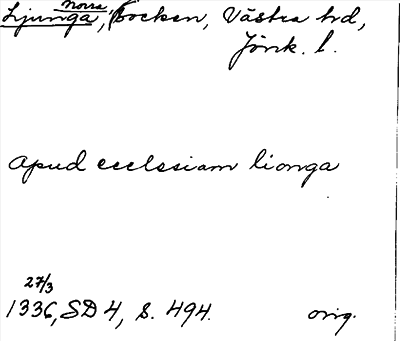 Norra
Ljunga, socken, Västra hd,
Jönk. l.
apud ecclesiam lionga
27/3
1336, SD 4, s. 494. orig.